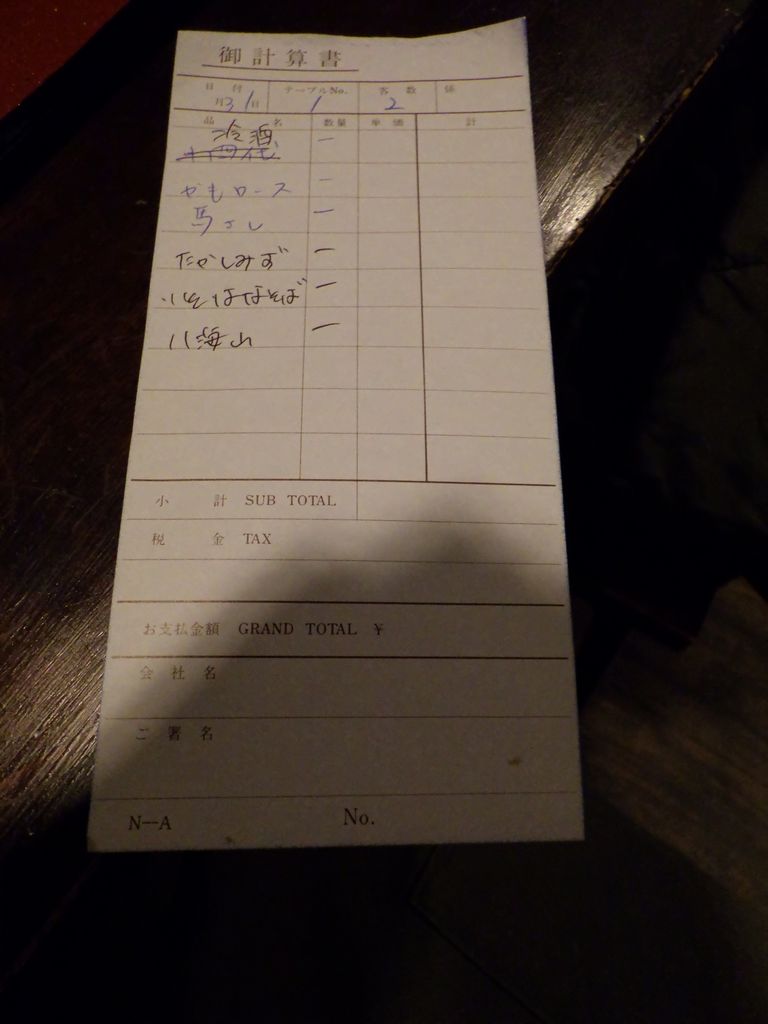 御計算書
日付 テーブルNo. 客数 係
月31日 1 2
品名 数量 単価 計
冷酒 一
かもロース 一
馬さし 一
たかしみず 一
いそばなそば 一
八海山 一
小計 SUB TOTAL
税金 TAX
お支払金額 GRAND TOTAL ¥
会社名
ご署名
N—A No.